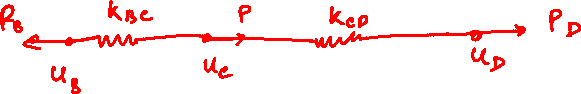 R_B k_BC P k_CD P_D
u_B u_C u_D